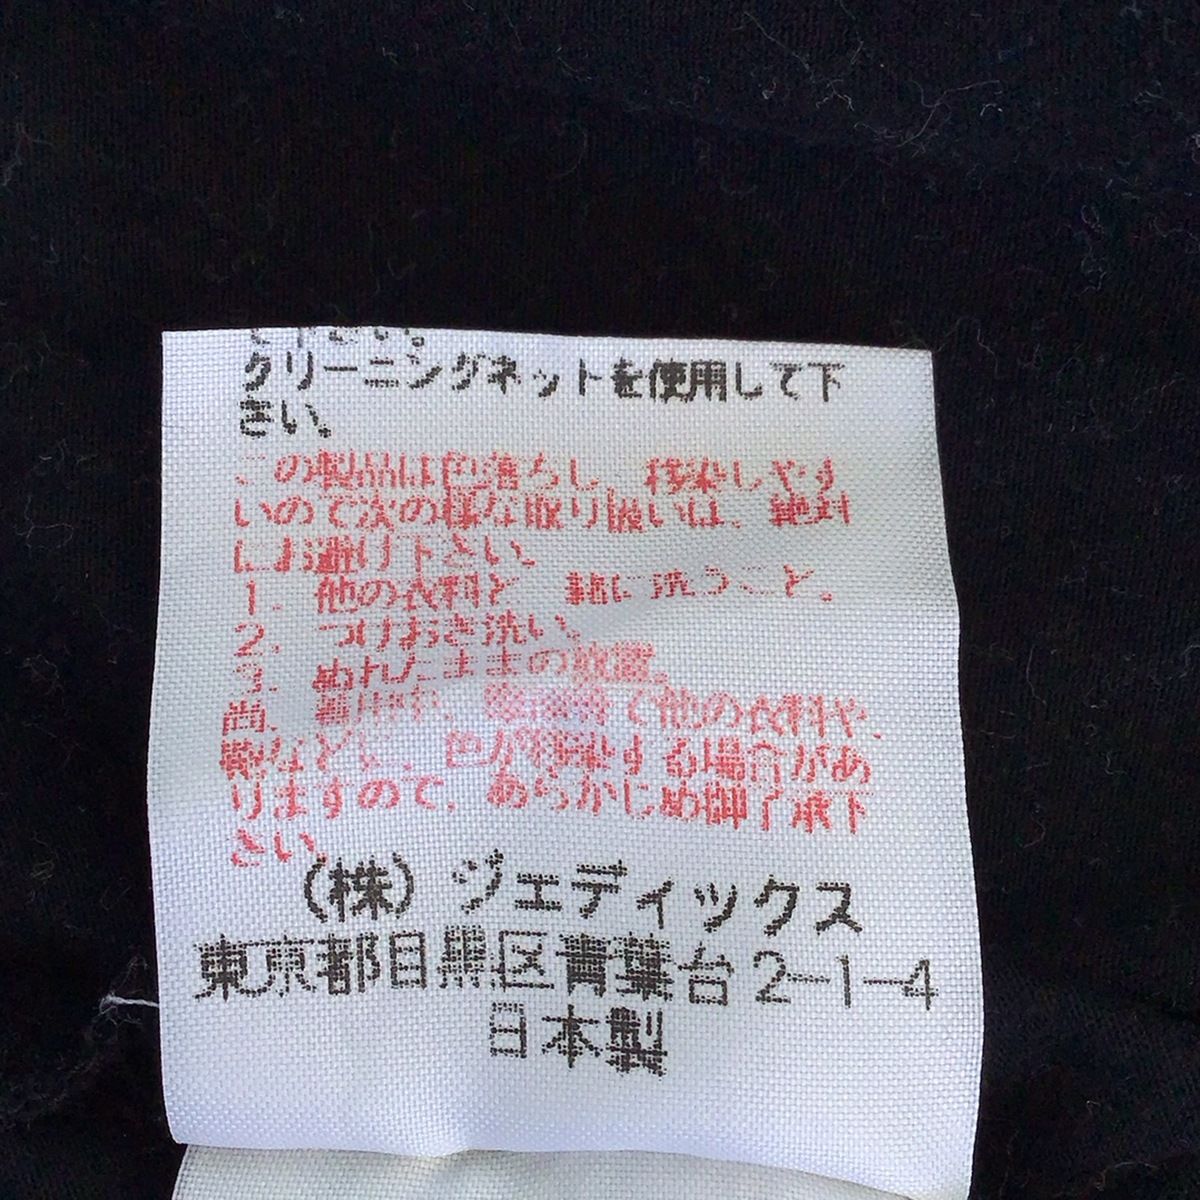 て下さい。
クリーニングネットを使用して下
さい。
この製品は色落ちし、移染しやす
いので次の様な取り扱いは、絶対
にお避け下さい。
1. 他の衣料と一緒に洗うこと。
2. つけおき洗い。
3. ぬれたままの放置。
尚、着用中、摩擦等で他の衣料や、
靴などに、色が移染する場合があ
りますので、あらかじめ御了承下
さい。
(株)ジェディックス
東京都目黒区青葉台2-1-4
日本製